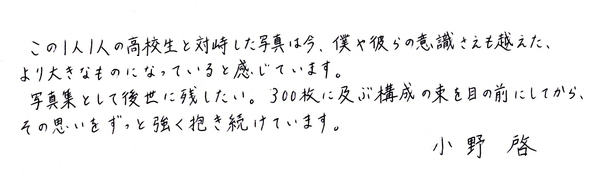 この1人1人の高校生と対峙した写真は今、僕や彼らの意識さえも越えた、
より大きなものになっていると感じています。
写真集として後世に残したい。300枚に及ぶ構成の束を目の前にしてから、
その思いをずっと強く抱き続けています。
小野 啓